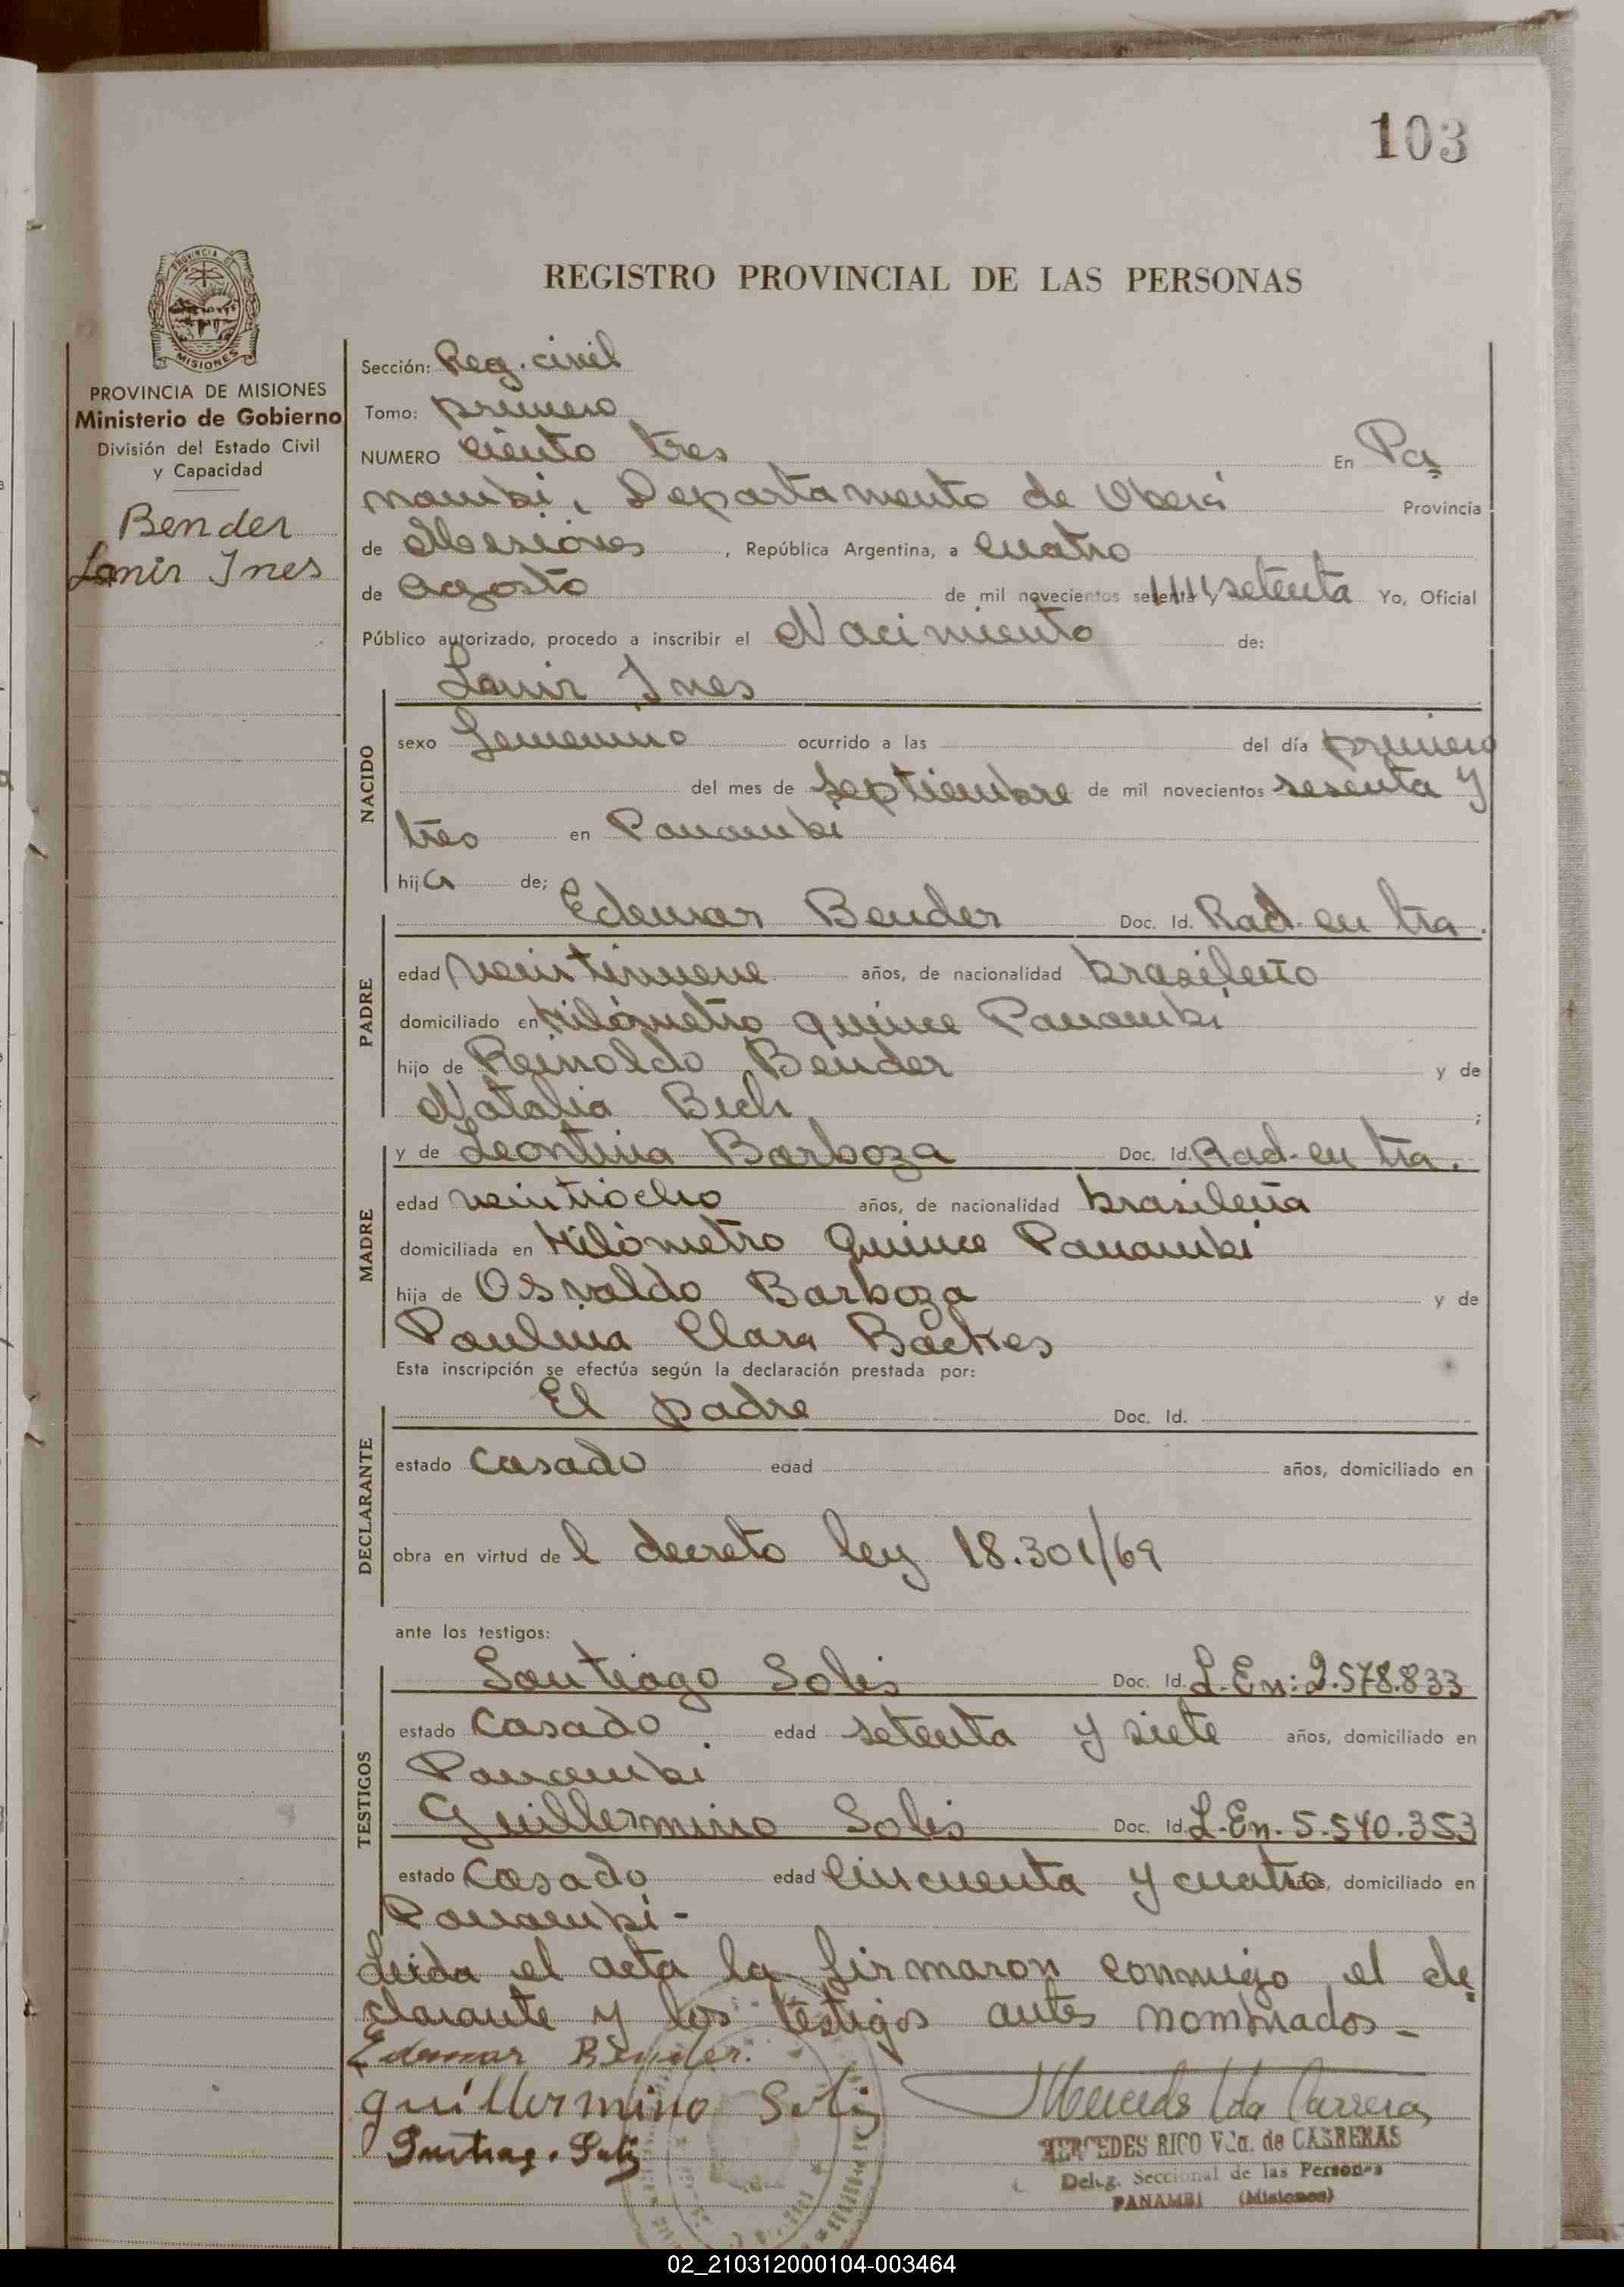 103
PROVINCIA DE
MISIONES
REGISTRO PROVINCIAL DE LAS PERSONAS
PROVINCIA DE MISIONES
Ministerio de Gobierno
División del Estado Civil
y Capacidad
Bender
Lanir Ines
Sección: Reg. civil
Tomo: primero
NUMERO ciento tres En Pa
nambi, Departamento de Oberá Provincia
de Misiones, República Argentina, a cuatro
de agosto de mil novecientos sesenta y setenta Yo, Oficial
Público autorizado, procedo a inscribir el Nacimiento de:
NACIDO
Lanir Ines
sexo femenino ocurrido a las del día primero
del mes de septiembre de mil novecientos sesenta y
tres en Panambi
hija de;
PADRE
Edemar Bender Doc. Id. Rad. en tra.
edad veintinueve años, de nacionalidad brasileño
domiciliado en Kilómetro quince Panambi
hijo de Reinoldo Bender y de
Natalia Bech;
MADRE
y de Leontina Barboza Doc. Id. Rad. en tra.
edad veintiocho años, de nacionalidad brasileña
domiciliada en Kilómetro quince Panambi
hija de Osvaldo Barboza y de
Paulina Clara Backes
Esta inscripción se efectúa según la declaración prestada por:
DECLARANTE
El padre Doc. Id.
estado casado edad años, domiciliado en
obra en virtud de l decreto ley 18.301/69
ante los testigos:
TESTIGOS
Santiago Solis Doc. Id. L. En: 2.578.833
estado casado edad setenta y siete años, domiciliado en
Panambi
Guillermino Solis Doc. Id. L. En. 5.540.353
estado casado edad cincuenta y cuatro años, domiciliado en
Panambi -
Leida el acta la firmaron conmigo el de
clarante y los testigos antes nombrados -
Edemar Bender.
guillermino Solis
Mercedes Vda Carreras
MERCEDES RICO Vda. de CARRERAS
Deleg. Seccional de las Personas
PANAMBI (Misiones)
02_210312000104-003464